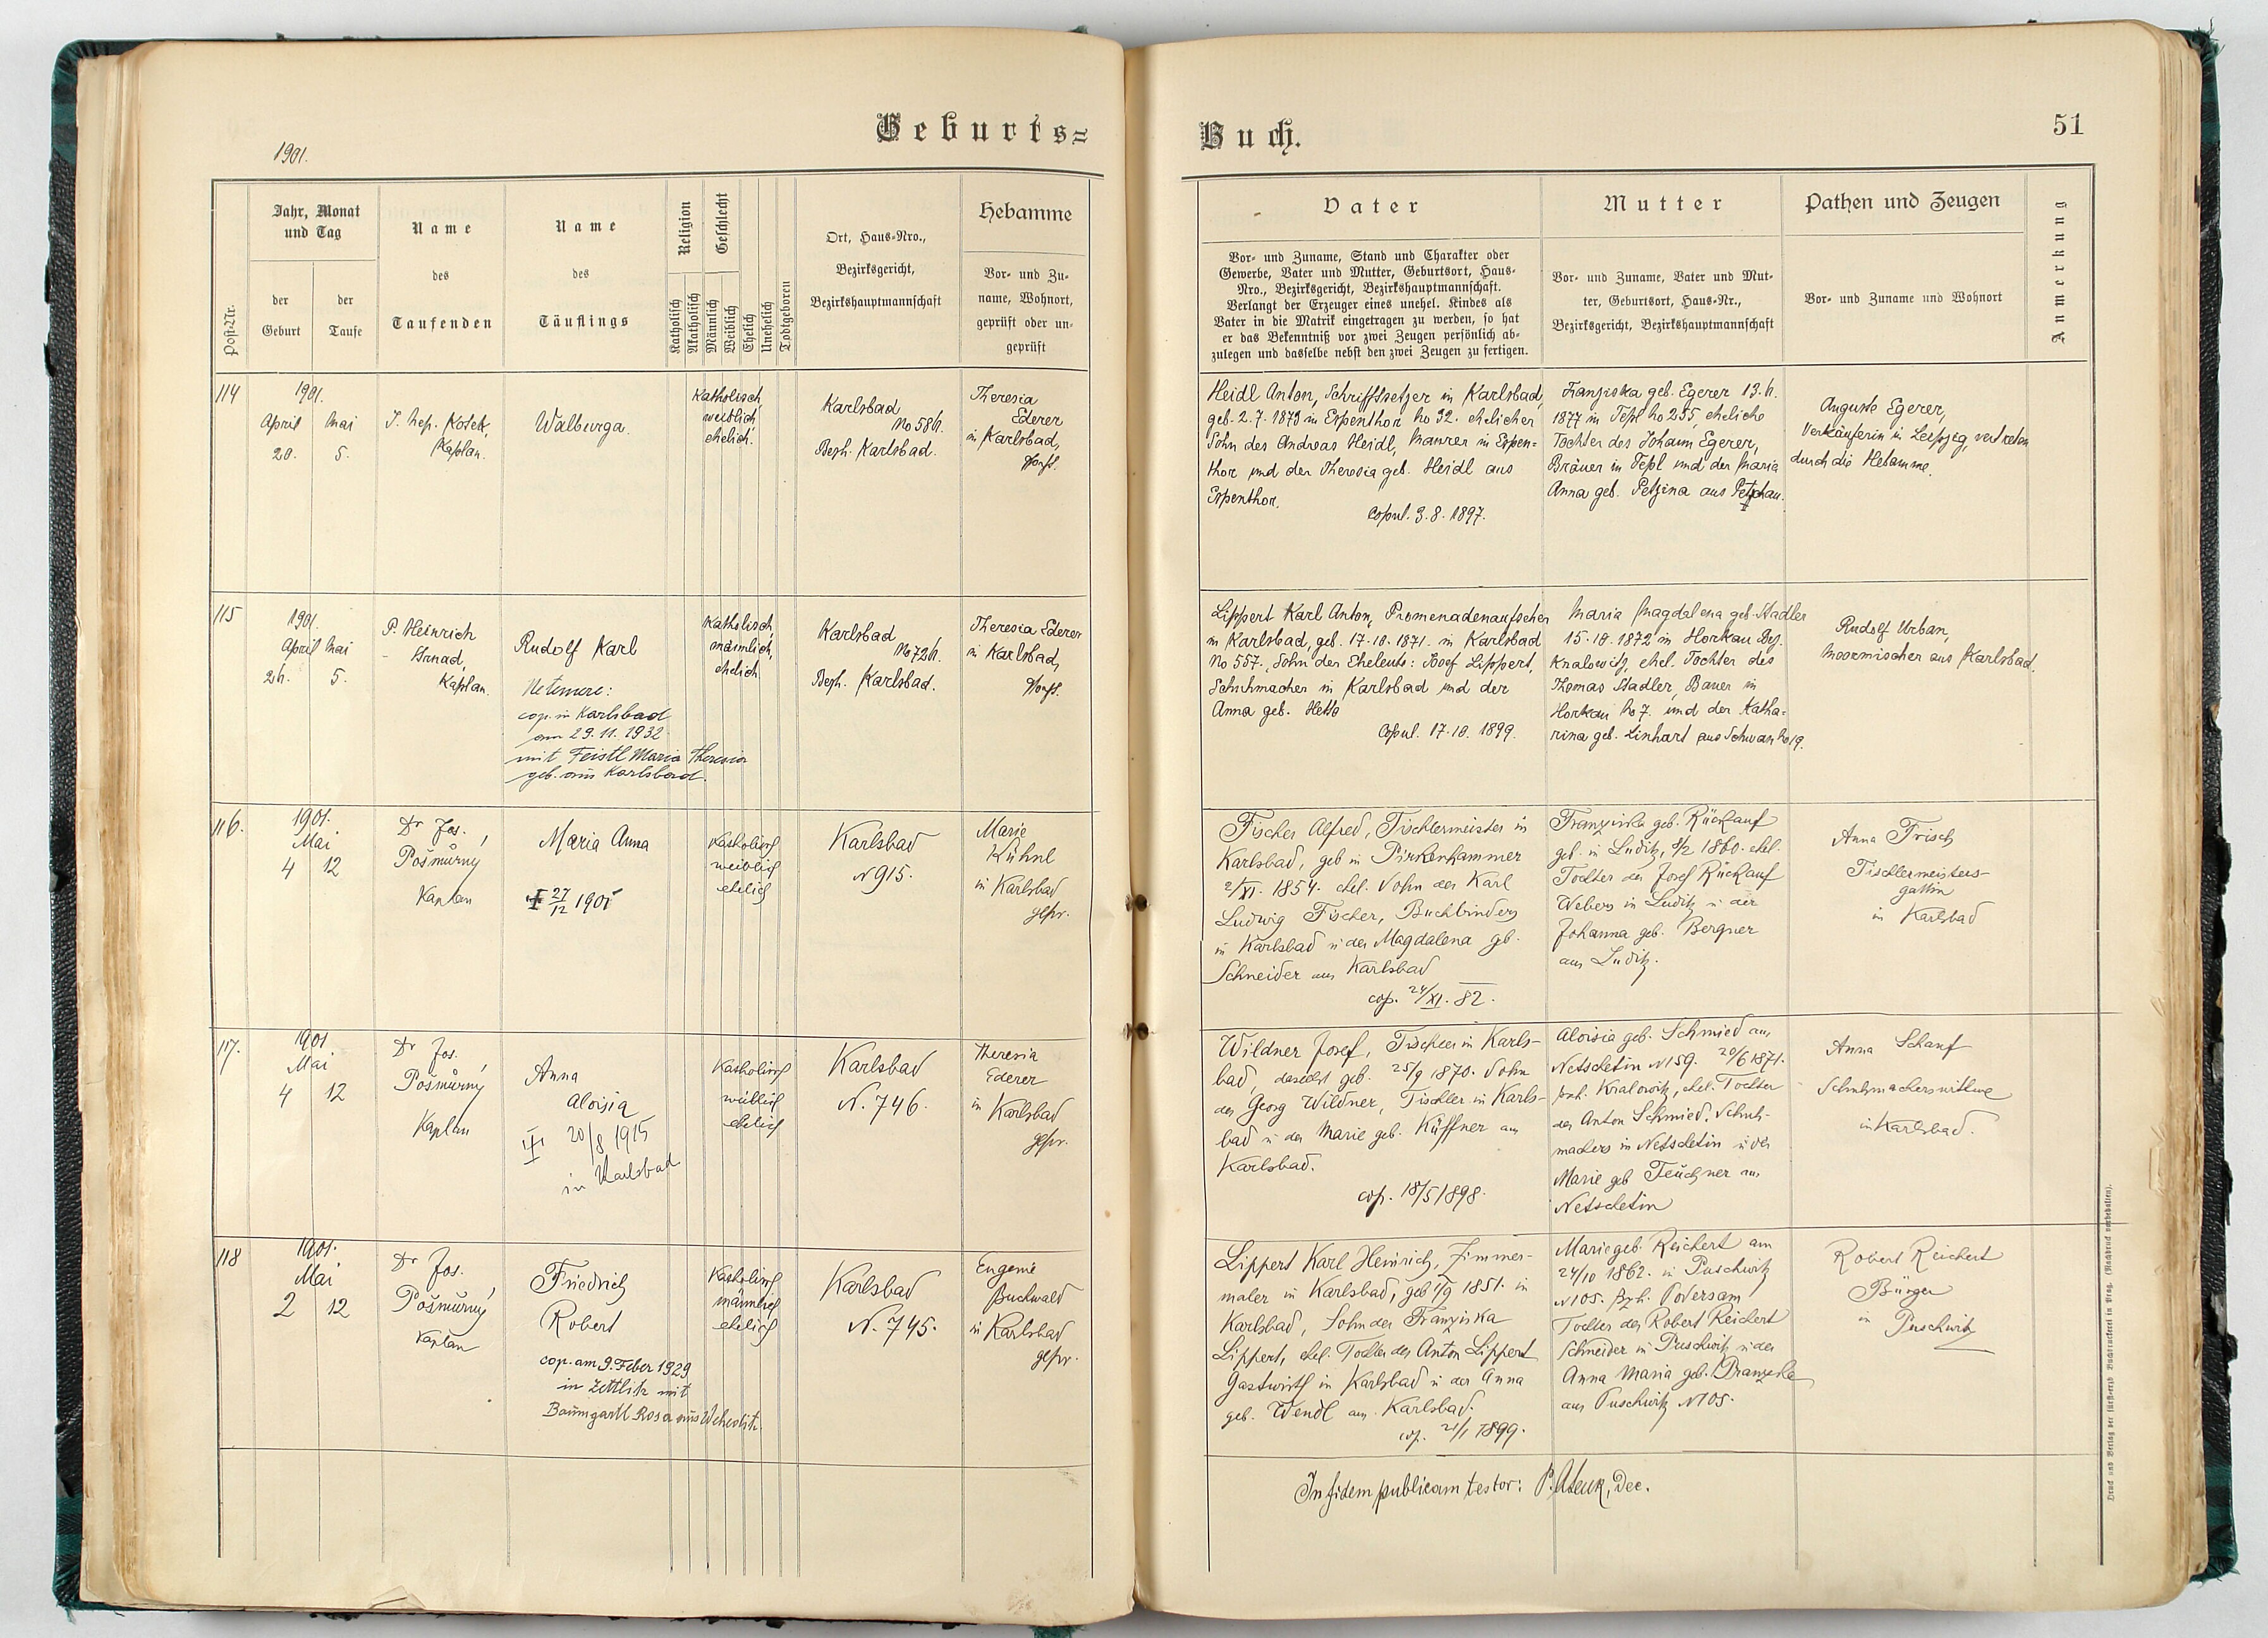 1901.
Geburts=
Buch.
51
Post-Nr.
Jahr, Monat
und Tag
der
Geburt
der
Taufe
Name
des
Taufenden
Name
des
Täuflings
Religion
Katholisch
Akatholisch
Geschlecht
Männlich
Weiblich
Ehelich
Unehelich
Todtgeboren
Ort, Haus-Nro.,
Bezirksgericht,
Bezirkshauptmannschaft
Hebamme
Vor- und Zu-
name, Wohnort,
geprüft oder un-
geprüft
Vater
Vor- und Zuname, Stand und Charakter oder
Gewerbe, Vater und Mutter, Geburtsort, Haus-
Nro., Bezirksgericht, Bezirkshauptmannschaft.
Verlangt der Erzeuger eines unehel. Kindes als
Vater in die Matrik eingetragen zu werden, so hat
er das Bekenntniß vor zwei Zeugen persönlich ab-
zulegen und dasselbe nebst den zwei Zeugen zu fertigen.
Mutter
Vor- und Zuname, Vater und Mut-
ter, Geburtsort, Haus-Nr.,
Bezirksgericht, Bezirkshauptmannschaft
Pathen und Zeugen
Vor- und Zuname und Wohnort
Anmerkung
114
1901.
April Mai
20. 5.
J. Nep. Kotek,
Kaplan.
Walburga.
Katholisch,
weiblich
ehelich.
Karlsbad
No 584.
Bezh. Karlsbad.
Theresia
Ederer
in Karlsbad,
Heidl Anton, Schriftsetzer in Karlsbad,
geb. 2. 7. 1873 in Espenthor No 32. ehelicher
Sohn des Andreas Heidl, Maurer in Espen-
thor und der Theresia geb. Heidl aus
Espenthor.
Copul. 3. 8. 1897.
Franziska geb. Egerer 13. 4.
1877 in Tepl No 255, eheliche
Tochter des Johann Egerer,
Bräuer in Tepl und der Maria
Anna geb. Petzina aus Petschau.
Auguste Egerer,
Verkäuferin in Leipzig, vertreten
durch die Hebamme.
115
1901.
April Mai
24. 5.
P. Heinrich
Strnad,
Kaplan.
Rudolf Karl
Ne temere:
cop. in Karlsbad
am 29. 11. 1932
mit Feistl Maria Theresia
geb. aus Karlsbad.
Katholisch,
männlich,
ehelich
Karlsbad
No 724.
Bezh. Karlsbad.
Theresia Ederer
in Karlsbad,
Lippert Karl Anton, Promenadenaufseher
in Karlsbad, geb. 17. 10. 1871. in Karlsbad
No 557. Sohn der Eheleute: Josef Lippert,
Schuhmacher in Karlsbad und der
Anna geb.
Copul. 17. 10. 1899.
Maria Magdalena geb. Stadler
15. 10. 1872 in Horkau Bez.
Kralowitz, ehel. Tochter des
Thomas Stadler, Bauer in
Horkau No 7. und der Katha-
rina geb. Linhart aus Schwan No 19.
Rudolf Urban,
Moormischer aus Karlsbad.
116.
1901.
Mai
4 12
Dr Jos.
Pošmůrný
Kaplan
Maria Anna
27/12 1901
Katholisch
weiblich
ehelich
Karlsbad
N 915.
Marie
Kühnl
in Karlsbad
gepr.
Fischer Alfred, Tischlermeister in
Karlsbad, geb in Pirkenhammer
2/XI. 1854. ehel. Sohn des Karl
Ludwig Fischer, Buchbinders
in Karlsbad u der Magdalena geb.
Schneider aus Karlsbad
cop. 24/XI. 82.
Franziska geb. Rückauf
geb. in Luditz, 8/2 1860. ehel.
Tochter des Josef Rückauf
Webers in Luditz u der
Johanna geb. Bergner
aus Luditz.
Anna Frisch
Tischlermeisters-
gattin
in Karlsbad
117.
1901
Mai
4 12
Dr Jos.
Pošmůrný
Kaplan
Anna
Aloisia
20/8 1915
in Karlsbad
Katholisch
weiblich
ehelich
Karlsbad
N. 746.
Theresia
Ederer
in Karlsbad
gepr.
Wildner Josef, Tischler in Karls-
bad, daselbst geb. 25/9 1870. Sohn
des Georg Wildner, Tischler in Karls-
bad u der Marie geb. Küffner aus
Karlsbad.
cop. 18/5 1898.
Aloisia geb. Schmied aus
Netschetin N 159. 20/6 1871.
bzh. Kralowitz, ehel. Tochter
des Anton Schmied, Schuh-
machers in Netschetin u der
Marie geb Feuchner aus
Netschetin
Anna Scharf
Schuhmacherswittwe
in Karlsbad.
118
1901.
Mai
2 12
Dr Jos.
Pošmůrný
Kaplan
Friedrich
Robert
cop. am 9. Feber 1929
in Zettlitz mit
Baumgartl Rosa aus Weheditz.
Katholisch
männlich
ehelich
Karlsbad
N. 745.
Eugenie
Buchwald
in Karlsbad
gepr.
Lippert Karl Heinrich, Zimmer-
maler in Karlsbad, geb 1/9 1851. in
Karlsbad, Sohn der Franziska
Lippert, ehel. Tochter des Anton Lippert
Gastwirth in Karlsbad u der Anna
geb. Wendl aus Karlsbad.
cop. 21/1 1899.
Marie geb. Reichert am
24/10 1862. in Puschwitz
N 105. Bzh. Podersam
Tochter des Robert Reichert
Schneider in Puschwitz u der
Anna Maria geb.
aus Puschwitz N 105.
Robert Reichert
Bürger
in Puschwitz
In fidem publicam testor: Dec.
Druck und Verlag der fürst-erzb Buchdruckerei in Prag. (Nachdruck vorbehalten).